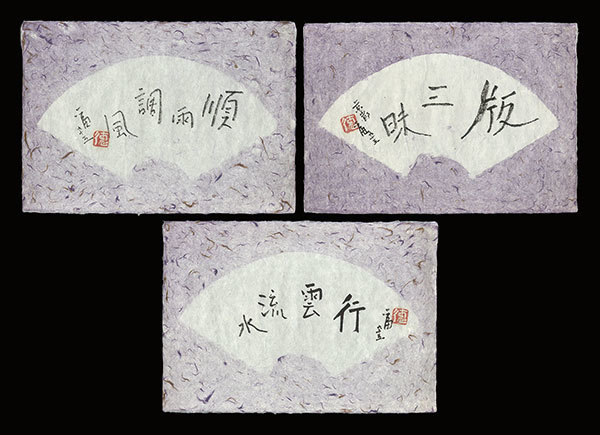 風調雨順
版三昧
行雲流水